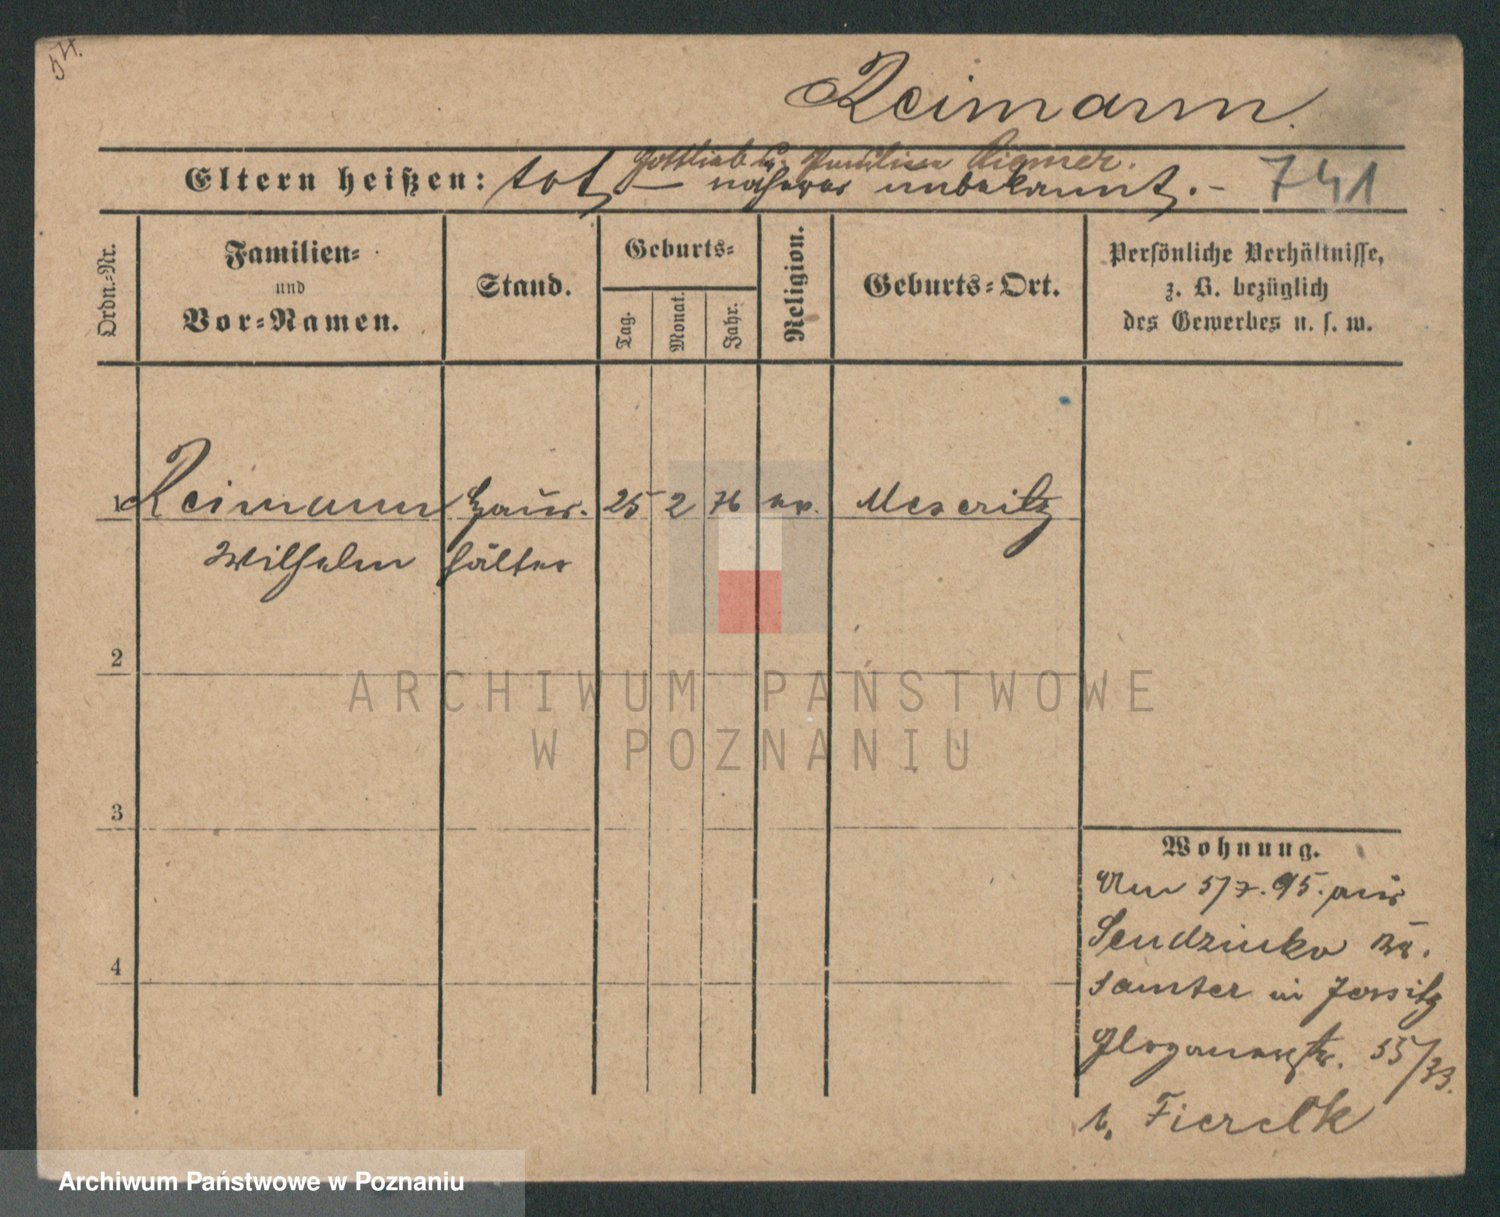 54.
Reimann.
Gottlieb u.
Eltern heißen: tot, — näheres unbekannt. – 741
Ordn.-Nr.
Familien-
und
Vor-Namen.
Stand.
Geburts-
Tag.
Monat.
Jahr.
Religion.
Geburts-Ort.
Persönliche Verhältnisse,
z. B. bezüglich
des Gewerbes u. s. w.
1 Reimann Haus- 25 2 76 ev. Meseritz
Wilhelm hälter
2
3
4
Wohnung.
Am 5/7. 95. aus
Sendzinko Kr.
Samter in Jersitz
Glogauerstr. 55/
b. Fierelk
ARCHIWUM PAŃSTWOWE
W POZNANIU
Archiwum Państwowe w Poznaniu